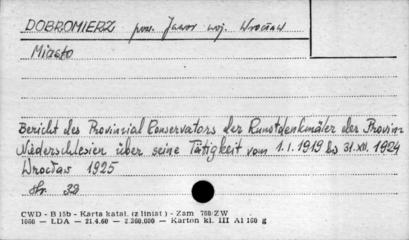 DOBROMIERZ pow. Jawor woj. Wrocław
Miasto
Bericht des Provinzial Conservators der Kunstdenkmäler der Provinz
Niederschlesien über seine Tätigkeit vom 1.I.1919 bis 31.XII.1924
Wrocław 1925
Str. 33
CWD - B 15b - Karta katal. (z liniat) - Zam 768/ZW
1080 - LDA - 21.4.60 - 2.360.000 - Karton kl. III A1 160 g